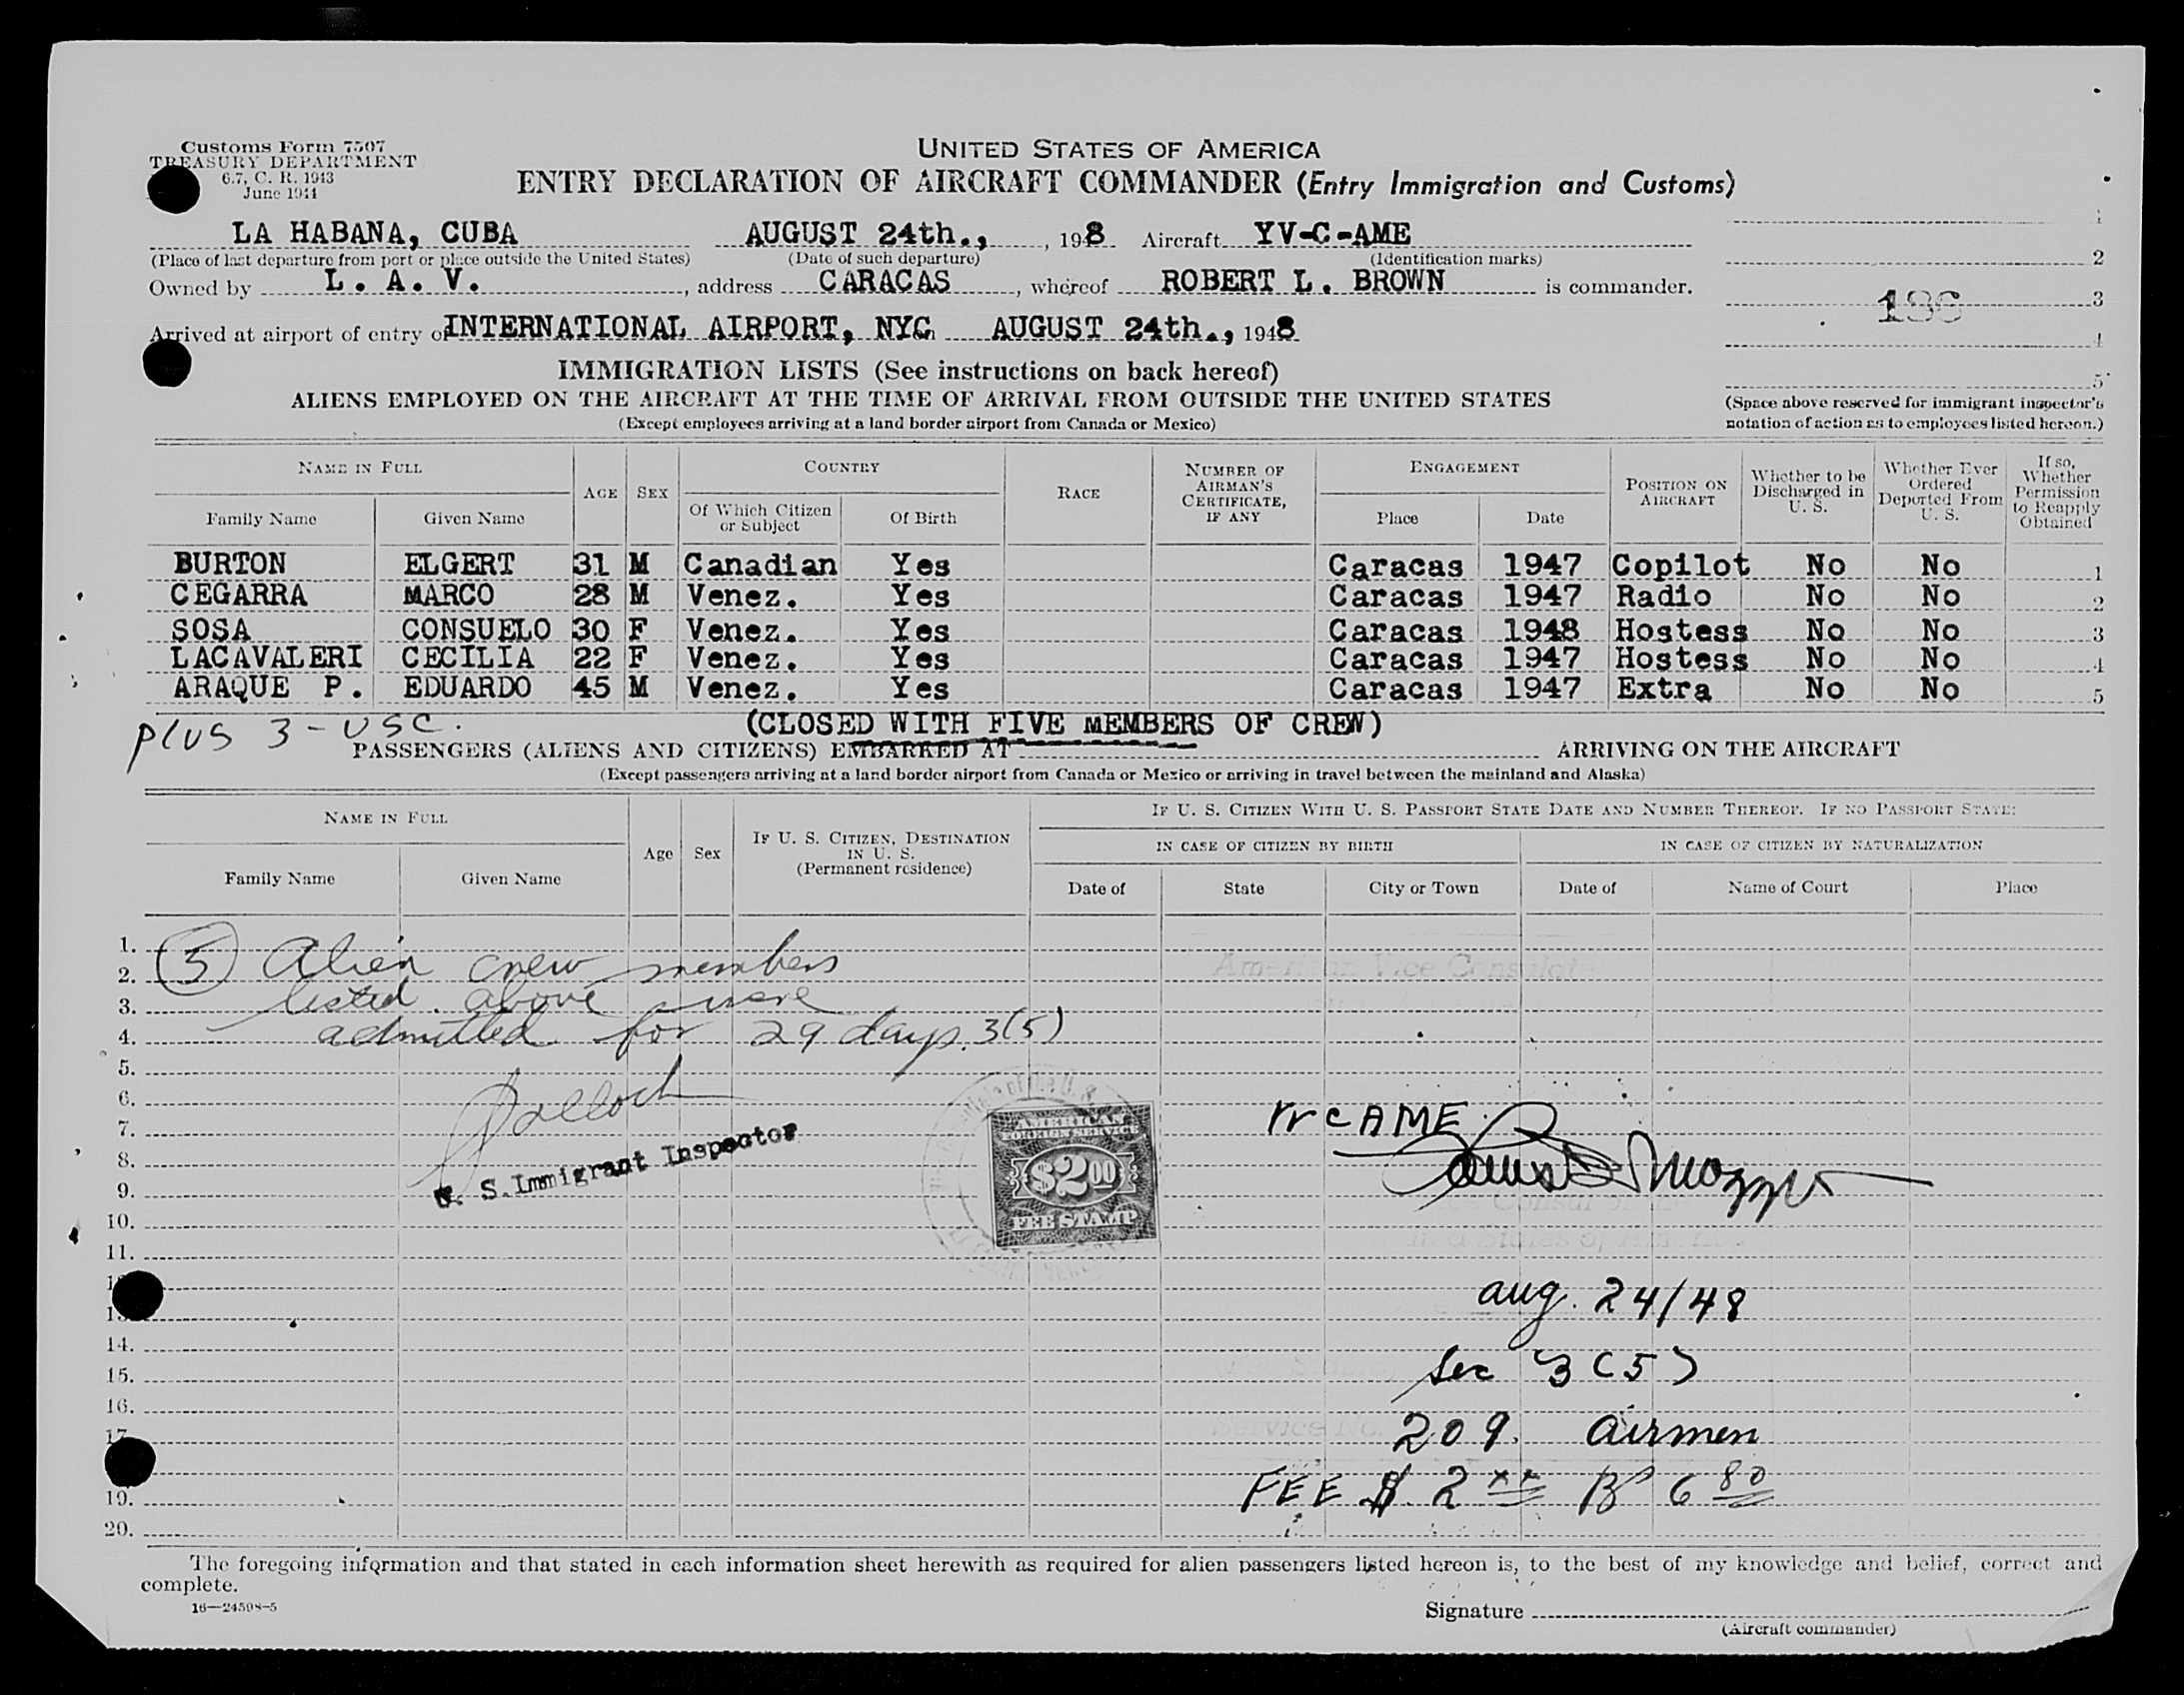 Customs Form 7507
TREASURY DEPARTMENT
6.7, C. R. 1943
June 1944
UNITED STATES OF AMERICA
ENTRY DECLARATION OF AIRCRAFT COMMANDER (Entry Immigration and Customs)
LA HABANA, CUBA AUGUST 24th., , 198 Aircraft YV-C-AME 1
(Place of last departure from port or place outside the United States) (Date of such departure) (Identification marks) 2
Owned by L. A. V. , address CARACAS , whereof ROBERT L. BROWN is commander. 3
Arrived at airport of entry of INTERNATIONAL AIRPORT, NYC AUGUST 24th., 1948 4
IMMIGRATION LISTS (See instructions on back hereof) 5
ALIENS EMPLOYED ON THE AIRCRAFT AT THE TIME OF ARRIVAL FROM OUTSIDE THE UNITED STATES
(Except employees arriving at a land border airport from Canada or Mexico)
(Space above reserved for immigrant inspector's
notation of action as to employees listed hereon.)
NAME IN FULL AGE SEX COUNTRY RACE NUMBER OF AIRMAN'S CERTIFICATE, IF ANY ENGAGEMENT POSITION ON AIRCRAFT Whether to be Discharged in U. S. Whether Ever Ordered Deported From U. S. If so, Whether Permission to Reapply Obtained
Family Name Given Name Of Which Citizen or Subject Of Birth Place Date
BURTON ELGERT 31 M Canadian Yes Caracas 1947 Copilot No No 1
CEGARRA MARCO 28 M Venez. Yes Caracas 1947 Radio No No 2
SOSA CONSUELO 30 F Venez. Yes Caracas 1948 Hostess No No 3
LACAVALERI CECILIA 22 F Venez. Yes Caracas 1947 Hostess No No 4
ARAQUE P. EDUARDO 45 M Venez. Yes Caracas 1947 Extra No No 5
plus 3 - USC. (CLOSED WITH FIVE MEMBERS OF CREW)
PASSENGERS (ALIENS AND CITIZENS) EMBARKED AT ARRIVING ON THE AIRCRAFT
(Except passengers arriving at a land border airport from Canada or Mexico or arriving in travel between the mainland and Alaska)
NAME IN FULL Age Sex IF U. S. CITIZEN, DESTINATION IN U. S. (Permanent residence) IF U. S. CITIZEN WITH U. S. PASSPORT STATE DATE AND NUMBER THEREOF. IF NO PASSPORT STATE:
IN CASE OF CITIZEN BY BIRTH IN CASE OF CITIZEN BY NATURALIZATION
Family Name Given Name Date of State City or Town Date of Name of Court Place
1. (5) Alien crew members
2.
3. listed above were
4. admitted for 29 days. 3(5)
5.
6.
7.
8. U. S. Immigrant Inspector
9.
10.
11.
AMERICAN
FOREIGN SERVICE
$2 00
FEE STAMP
aug. 24/48
14.
15. Sec 3 (5)
16.
17. 209. airmen
FEE $ 2 xx Bs 6 80
19.
20.
The foregoing information and that stated in each information sheet herewith as required for alien passengers listed hereon is, to the best of my knowledge and belief, correct and
complete.
16—24598-5
Signature
(Aircraft commander)